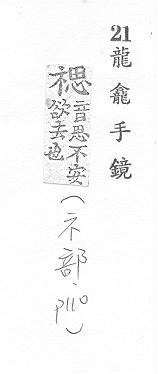 21龍龕手鏡
禗音思不安
欲去也
(ネ部、p110)